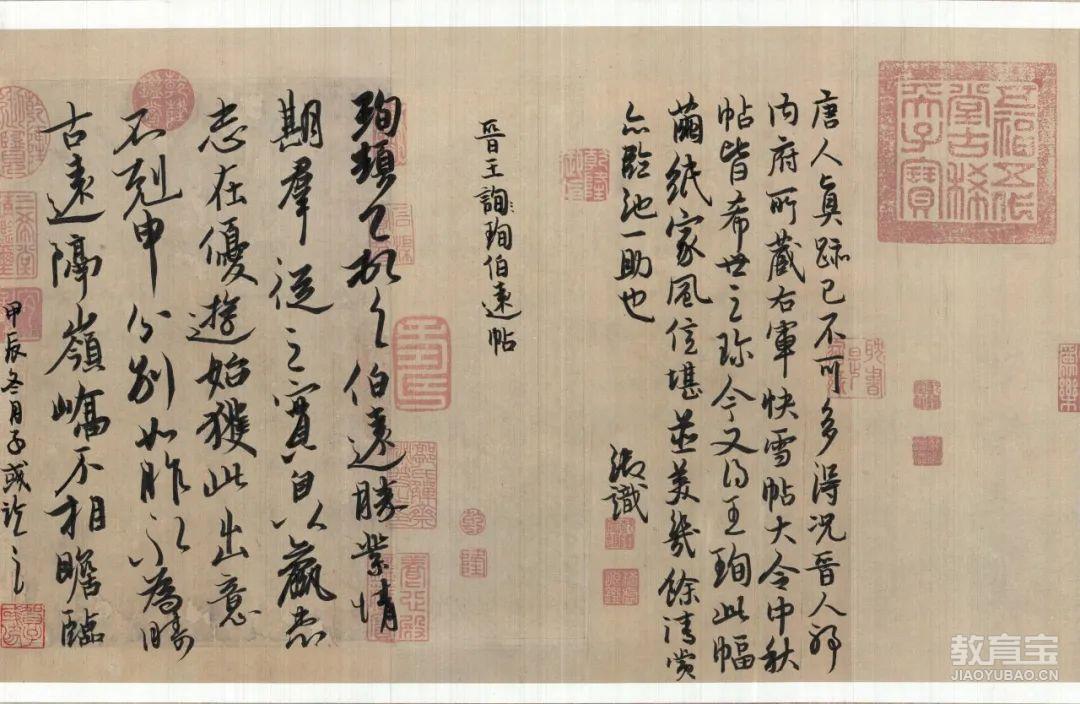 五福五代
堂古稀
天子寶
唐人真跡已不可多得况晉人耶
内府所藏右軍快雪帖大令中秋
帖皆希世之珍今又得王珣此幅
繭紙家風信堪並美幾餘清賞
亦臨池一助也
御識
晉王詢珣伯遠帖
珣頓首頓首伯遠勝業情
期羣從之寶自以羸患
志在優遊始獲此出意
不剋申分别如昨永為疇
古遠隔嶺嶠不相瞻臨
甲辰冬月子或
教育宝
JIAOYUBAO.CN